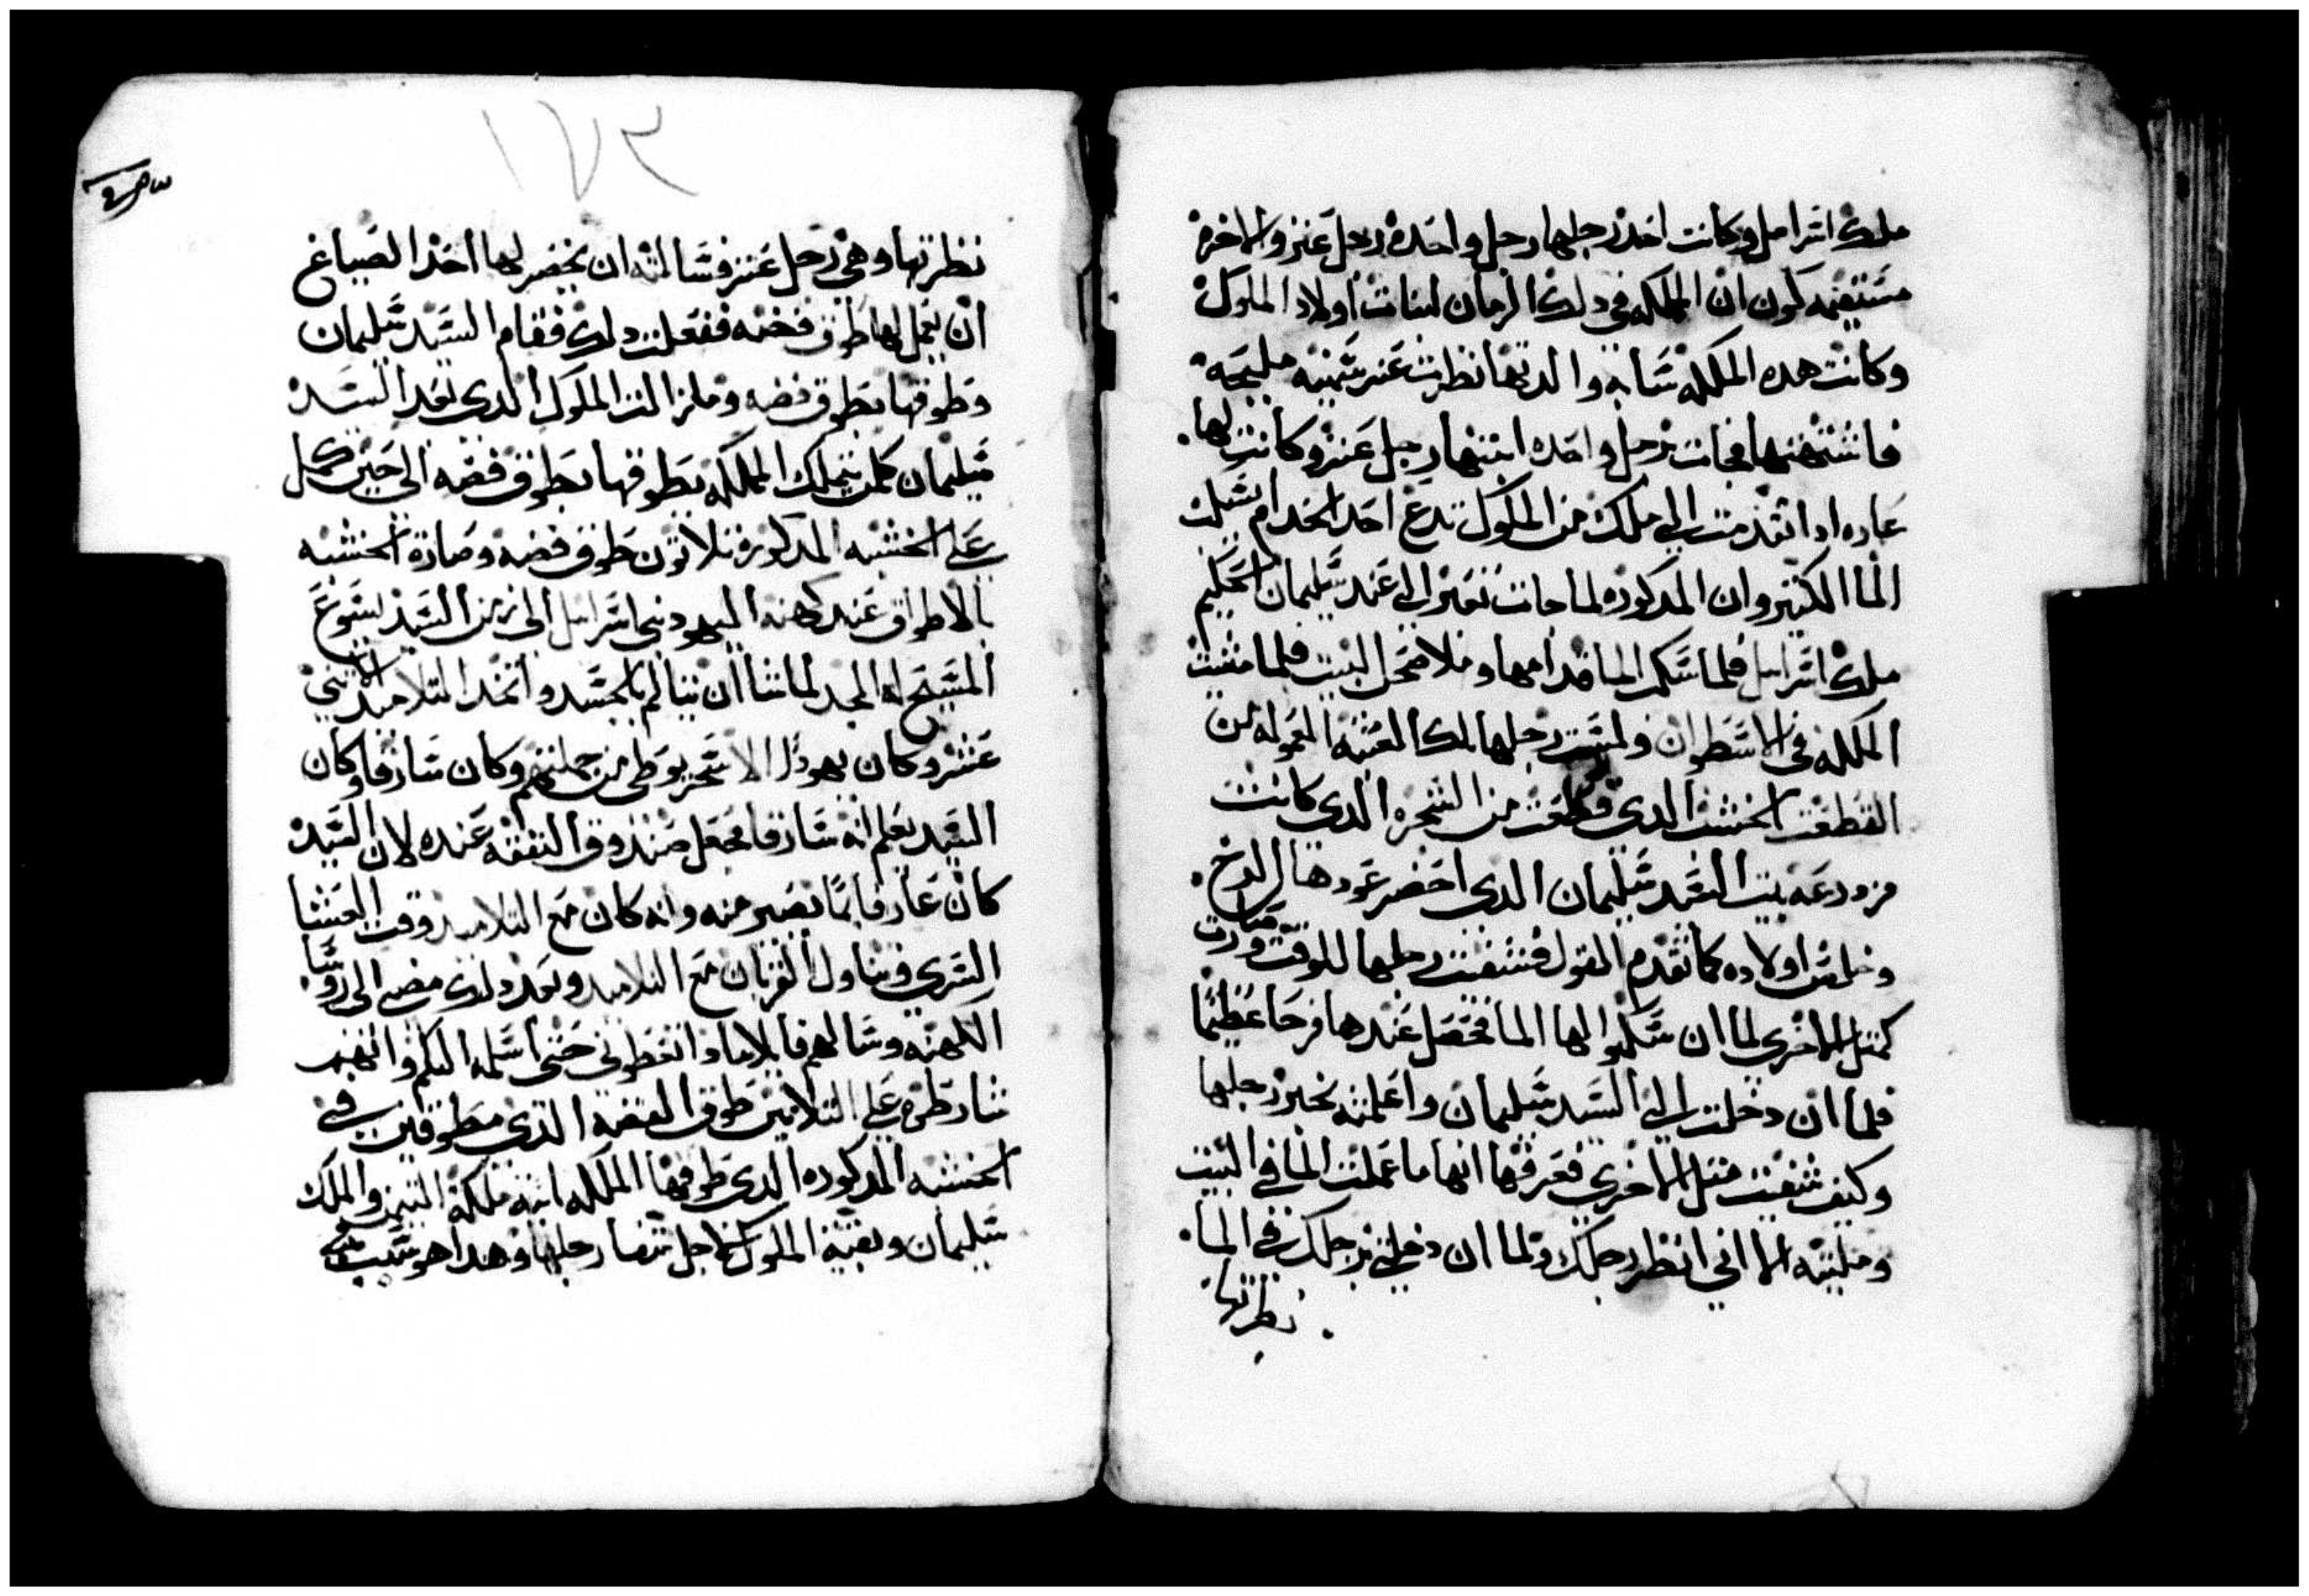 ملك اسرايل وكانت احد رجليها رجل واحده رجل عنز والاخره
مستقيمه لكون ان المملكه في دلك الزمان لبنات اولاد الملوك
وكانت هده الملكه شابه والدتها نظرت عنز سمينه مليحه
فاشتهتها فجات رجل واحده ابنتها رجل عنز وكانت لها
عاده ادا تقدمت الي ملك من الملوك تدع احد الخدام يسكب
الما الكتير وان المدكوره لما جات تعبر الي عند سليمان الحكيم
ملك اسرايل فلما سكب الما قدامها وملا صحن البيت فلما مشت
الملكه في الاسطوان ولمست رجلها تلك العتبه المعموله من
القطعت الخشب الدي قطعت من الشجره الدي كانت
مزروعه بيت السيد سليمان الدي احضر عودها الرخ
وخلص اولاده كما تقدم القول فشفيت رجلها للوقت وصارت
كمتل الاخري لما ان سكبوا لها الما فحصل عندها فرحا عظيما
فلما ان دخلت الي السيد سليمان واعلمته بخبر رجلها
وكيف شفيت متل الاخري فعرفها انها ما عملت الما في البيت
ومليته الا اني انظر رجلك ولما ان دخلتي برجلك في الما
نظرتها
١٧٣
نظرتها وهي رجل عنز فسالته ان يحضر لها احد الصياغ
ان يعمل لها طوق فضه ففعلت دلك فقام السيد سليمان
وطوقها بطوق فضه وما زالت الملوك الدي بعد السيد
سليمان كلمن يتملك المملكه يطوقها بطوق فضه الي حين كمل
علي الخشبه المدكوره تلاتون طوق فضه وصارة الخشبه
بالاطواق عند كهنه اليهود بني اسرايل الي زمن السيد يسوع
المسيح له المجد لما شا ان يتالم بالجسد واتخد التلاميد الاتني
عشر وكان يهودا الاسخريوطي من جملتهم وكان سارقا وكان
السيد يعلم انه سارقا فجعل صندوق النفقه عنده لان السيد
كان عارفا بما يصير منه وانه كان مع التلاميد وقت العشا
السري وتناول القربان مع التلاميد وبعد دلك مضي الي روسا
الكهنه وسالهم قايلا مادا تعطوني حتي اسلمه اليكم وانهم
شارطوه علي التلاتين طوق الفضه الدي مطوقين في
الخشبه المدكوره الدي طوقها الملكه ابنة ملكة التيمن والملك
سليمان وبقية الملوك لاجل شفا رجلها وهدا هو سبب